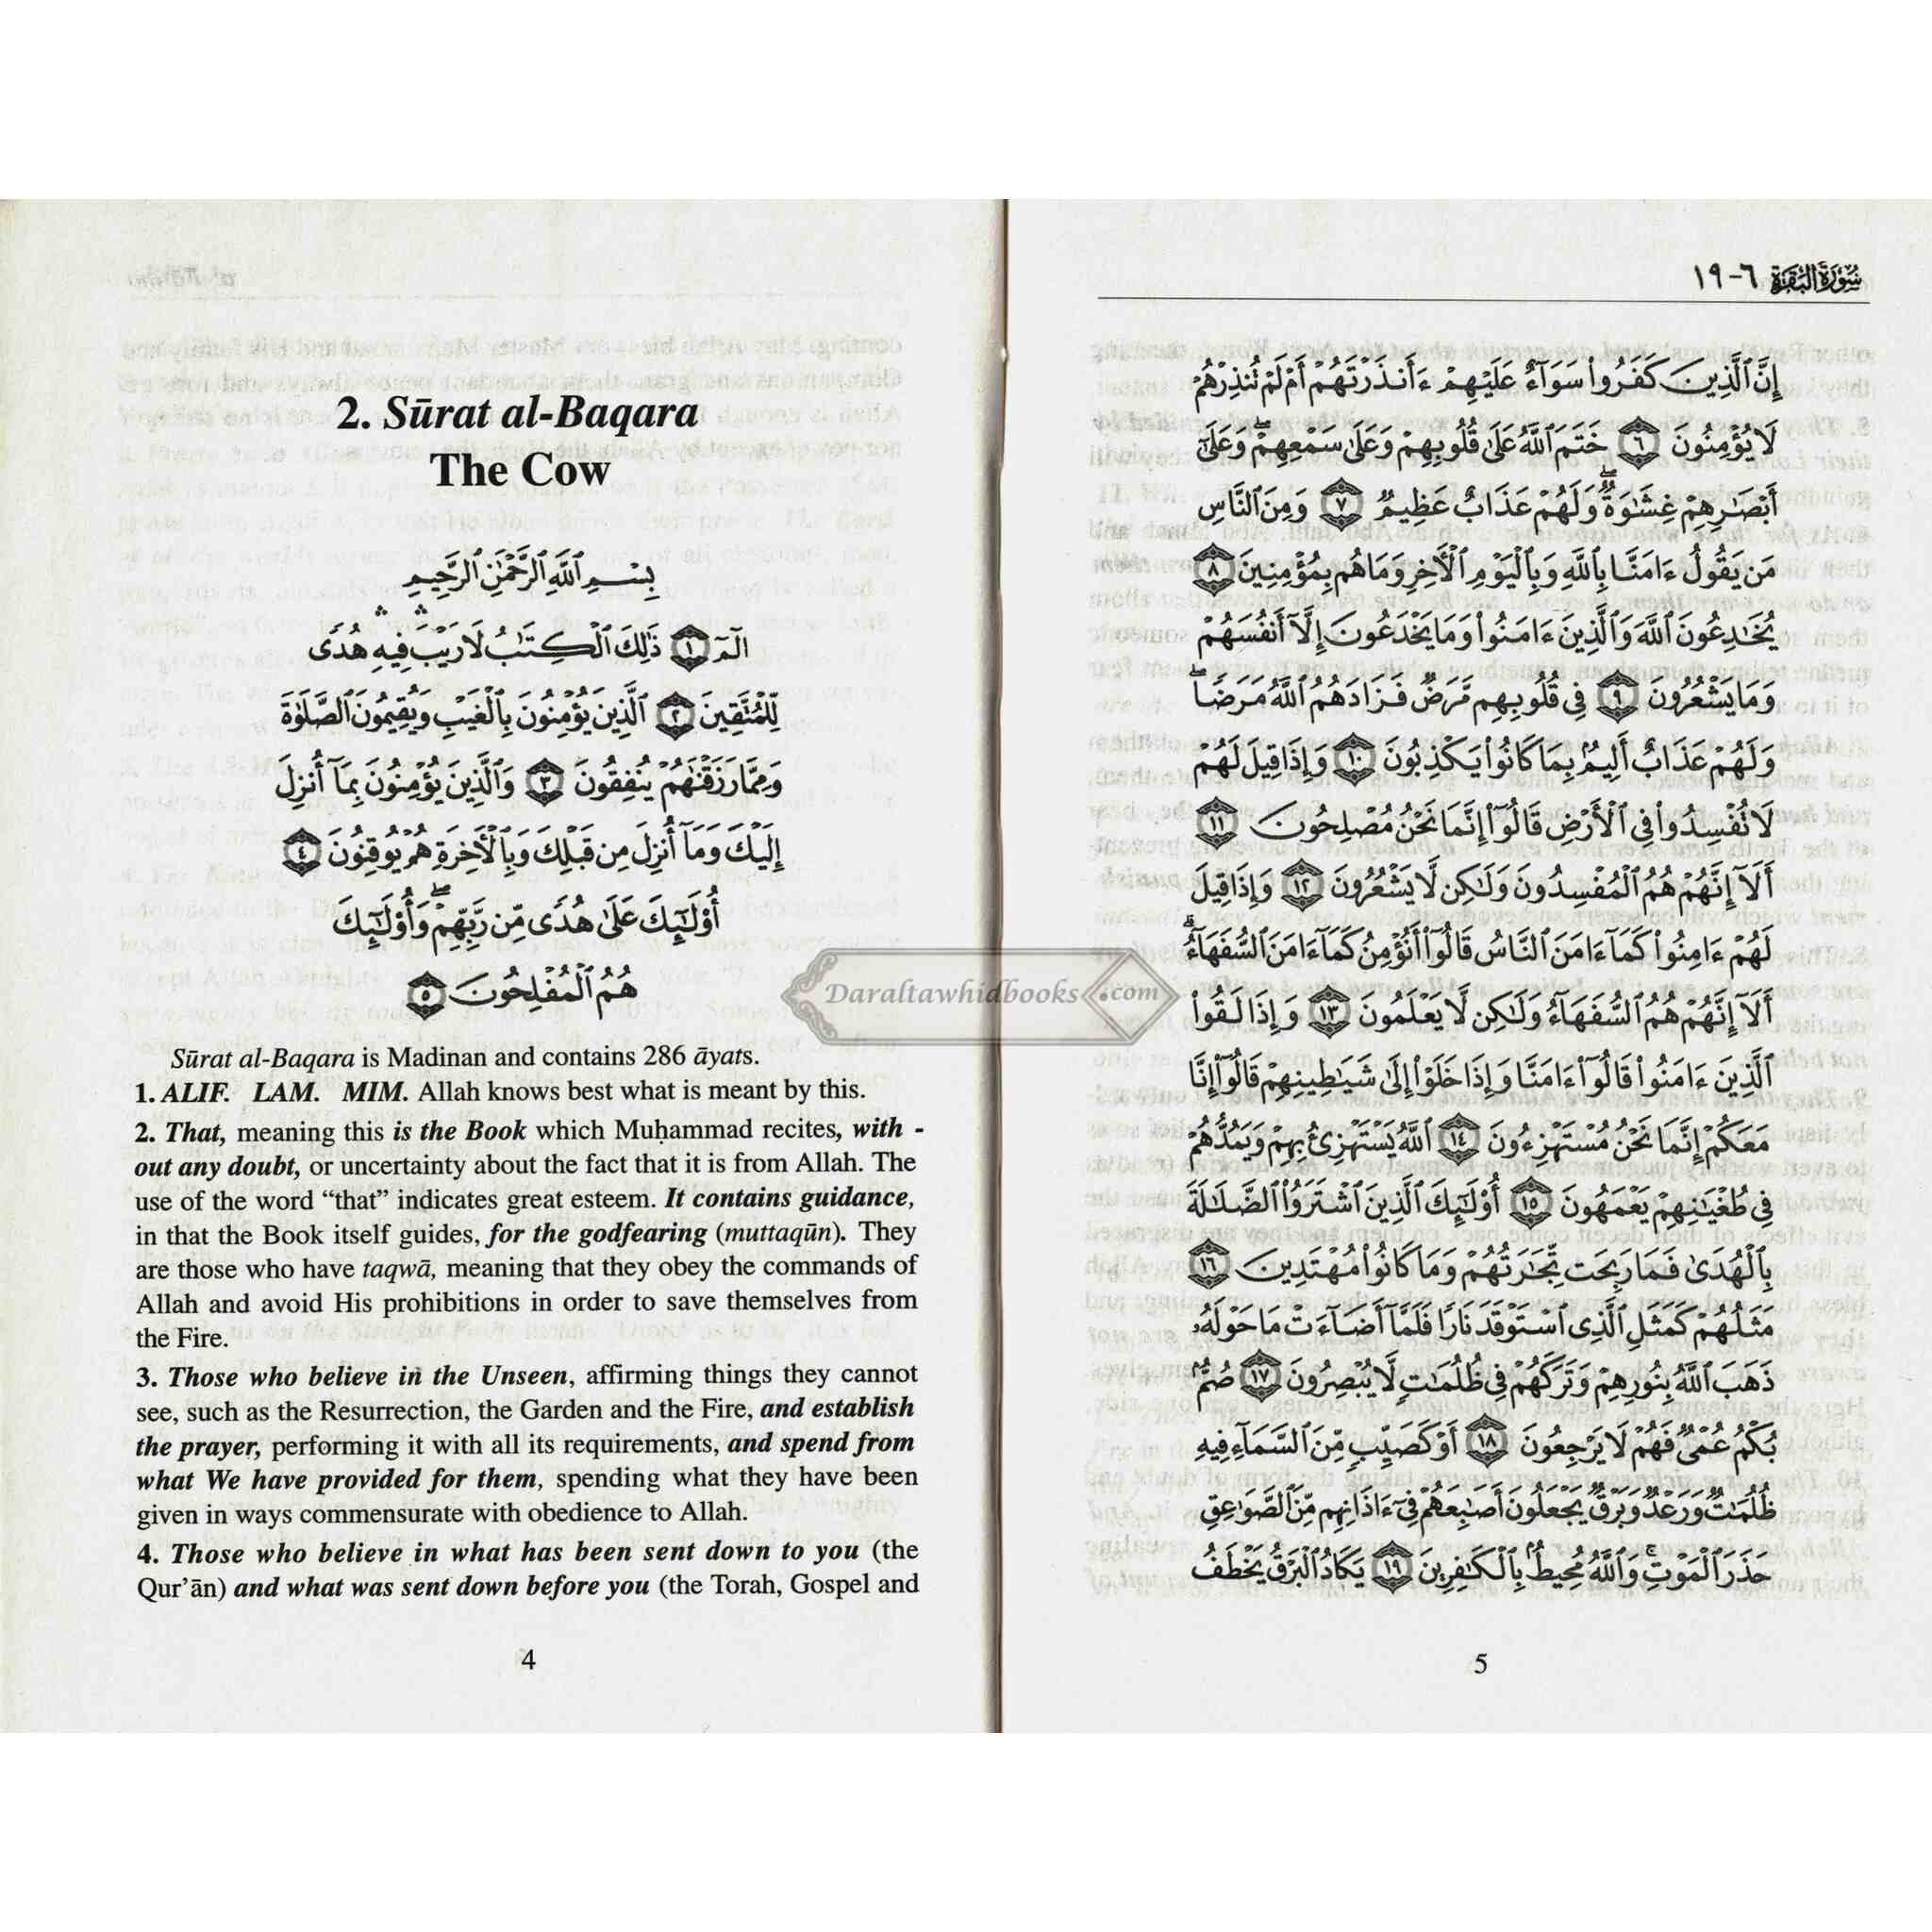 2. Sūrat al-Baqara
The Cow
بِسْمِ ٱللَّهِ ٱلرَّحْمَٰنِ ٱلرَّحِيمِ
الٓمٓ ١ ذَٰلِكَ ٱلْكِتَٰبُ لَا رَيْبَ ۛ فِيهِ ۛ هُدًى
لِّلْمُتَّقِينَ ٢ ٱلَّذِينَ يُؤْمِنُونَ بِٱلْغَيْبِ وَيُقِيمُونَ ٱلصَّلَوٰةَ
وَمِمَّا رَزَقْنَٰهُمْ يُنفِقُونَ ٣ وَٱلَّذِينَ يُؤْمِنُونَ بِمَآ أُنزِلَ
إِلَيْكَ وَمَآ أُنزِلَ مِن قَبْلِكَ وَبِٱلْأَخِرَةِ هُمْ يُوقِنُونَ ٤
أُوْلَٰٓئِكَ عَلَىٰ هُدًى مِّن رَّبِّهِمْ ۖ وَأُوْلَٰٓئِكَ
هُمُ ٱلْمُفْلِحُونَ ٥
Sūrat al-Baqara is Madinan and contains 286 āyats.
1. ALIF. LAM. MIM. Allah knows best what is meant by this.
2. That, meaning this is the Book which Muḥammad recites, with -
out any doubt, or uncertainty about the fact that it is from Allah. The
use of the word “that” indicates great esteem. It contains guidance,
in that the Book itself guides, for the godfearing (muttaqūn). They
are those who have taqwā, meaning that they obey the commands of
Allah and avoid His prohibitions in order to save themselves from
the Fire.
3. Those who believe in the Unseen, affirming things they cannot
see, such as the Resurrection, the Garden and the Fire, and establish
the prayer, performing it with all its requirements, and spend from
what We have provided for them, spending what they have been
given in ways commensurate with obedience to Allah.
4. Those who believe in what has been sent down to you (the
Qur’ān) and what was sent down before you (the Torah, Gospel and
4
سُورَةُ البَقَرَة ٦-١٩
إِنَّ ٱلَّذِينَ كَفَرُوا۟ سَوَآءٌ عَلَيْهِمْ ءَأَنذَرْتَهُمْ أَمْ لَمْ تُنذِرْهُمْ
لَا يُؤْمِنُونَ ٦ خَتَمَ ٱللَّهُ عَلَىٰ قُلُوبِهِمْ وَعَلَىٰ سَمْعِهِمْ ۖ وَعَلَىٰٓ
أَبْصَٰرِهِمْ غِشَٰوَةٌ ۖ وَلَهُمْ عَذَابٌ عَظِيمٌ ٧ وَمِنَ ٱلنَّاسِ
مَن يَقُولُ ءَامَنَّا بِٱللَّهِ وَبِٱلْيَوْمِ ٱلْأَخِرِ وَمَا هُم بِمُؤْمِنِينَ ٨
يُخَٰدِعُونَ ٱللَّهَ وَٱلَّذِينَ ءَامَنُوا۟ وَمَا يَخْدَعُونَ إِلَّآ أَنفُسَهُمْ
وَمَا يَشْعُرُونَ ٩ فِى قُلُوبِهِم مَّرَضٌ فَزَادَهُمُ ٱللَّهُ مَرَضًا ۖ
وَلَهُمْ عَذَابٌ أَلِيمٌۢ بِمَا كَانُوا۟ يَكْذِبُونَ ١٠ وَإِذَا قِيلَ لَهُمْ
لَا تُفْسِدُوا۟ فِى ٱلْأَرْضِ قَالُوٓا۟ إِنَّمَا نَحْنُ مُصْلِحُونَ ١١
أَلَآ إِنَّهُمْ هُمُ ٱلْمُفْسِدُونَ وَلَٰكِن لَّا يَشْعُرُونَ ١٢ وَإِذَا قِيلَ
لَهُمْ ءَامِنُوا۟ كَمَآ ءَامَنَ ٱلنَّاسُ قَالُوٓا۟ أَنُؤْمِنُ كَمَآ ءَامَنَ ٱلسُّفَهَآءُ ۗ
أَلَآ إِنَّهُمْ هُمُ ٱلسُّفَهَآءُ وَلَٰكِن لَّا يَعْلَمُونَ ١٣ وَإِذَا لَقُوا۟
ٱلَّذِينَ ءَامَنُوا۟ قَالُوٓا۟ ءَامَنَّا وَإِذَا خَلَوْا۟ إِلَىٰ شَيَٰطِينِهِمْ قَالُوٓا۟ إِنَّا
مَعَكُمْ إِنَّمَا نَحْنُ مُسْتَهْزِءُونَ ١٤ ٱللَّهُ يَسْتَهْزِئُ بِهِمْ وَيَمُدُّهُمْ
فِى طُغْيَٰنِهِمْ يَعْمَهُونَ ١٥ أُوْلَٰٓئِكَ ٱلَّذِينَ ٱشْتَرَوُا۟ ٱلضَّلَٰلَةَ
بِٱلْهُدَىٰ فَمَا رَبِحَت تِّجَٰرَتُهُمْ وَمَا كَانُوا۟ مُهْتَدِينَ ١٦
مَثَلُهُمْ كَمَثَلِ ٱلَّذِى ٱسْتَوْقَدَ نَارًا فَلَمَّآ أَضَآءَتْ مَا حَوْلَهُۥ
ذَهَبَ ٱللَّهُ بِنُورِهِمْ وَتَرَكَهُمْ فِى ظُلُمَٰتٍ لَّا يُبْصِرُونَ ١٧ صُمٌّۢ
بُكْمٌ عُمْىٌ فَهُمْ لَا يَرْجِعُونَ ١٨ أَوْ كَصَيِّبٍ مِّنَ ٱلسَّمَآءِ فِيهِ
ظُلُمَٰتٌ وَرَعْدٌ وَبَرْقٌ يَجْعَلُونَ أَصَٰبِعَهُمْ فِىٓ ءَاذَانِهِم مِّنَ ٱلصَّوَٰعِقِ
حَذَرَ ٱلْمَوْتِ ۚ وَٱللَّهُ مُحِيطٌۢ بِٱلْكَٰفِرِينَ ١٩ يَكَادُ ٱلْبَرْقُ يَخْطَفُ
5
Daraltawhidbooks .com